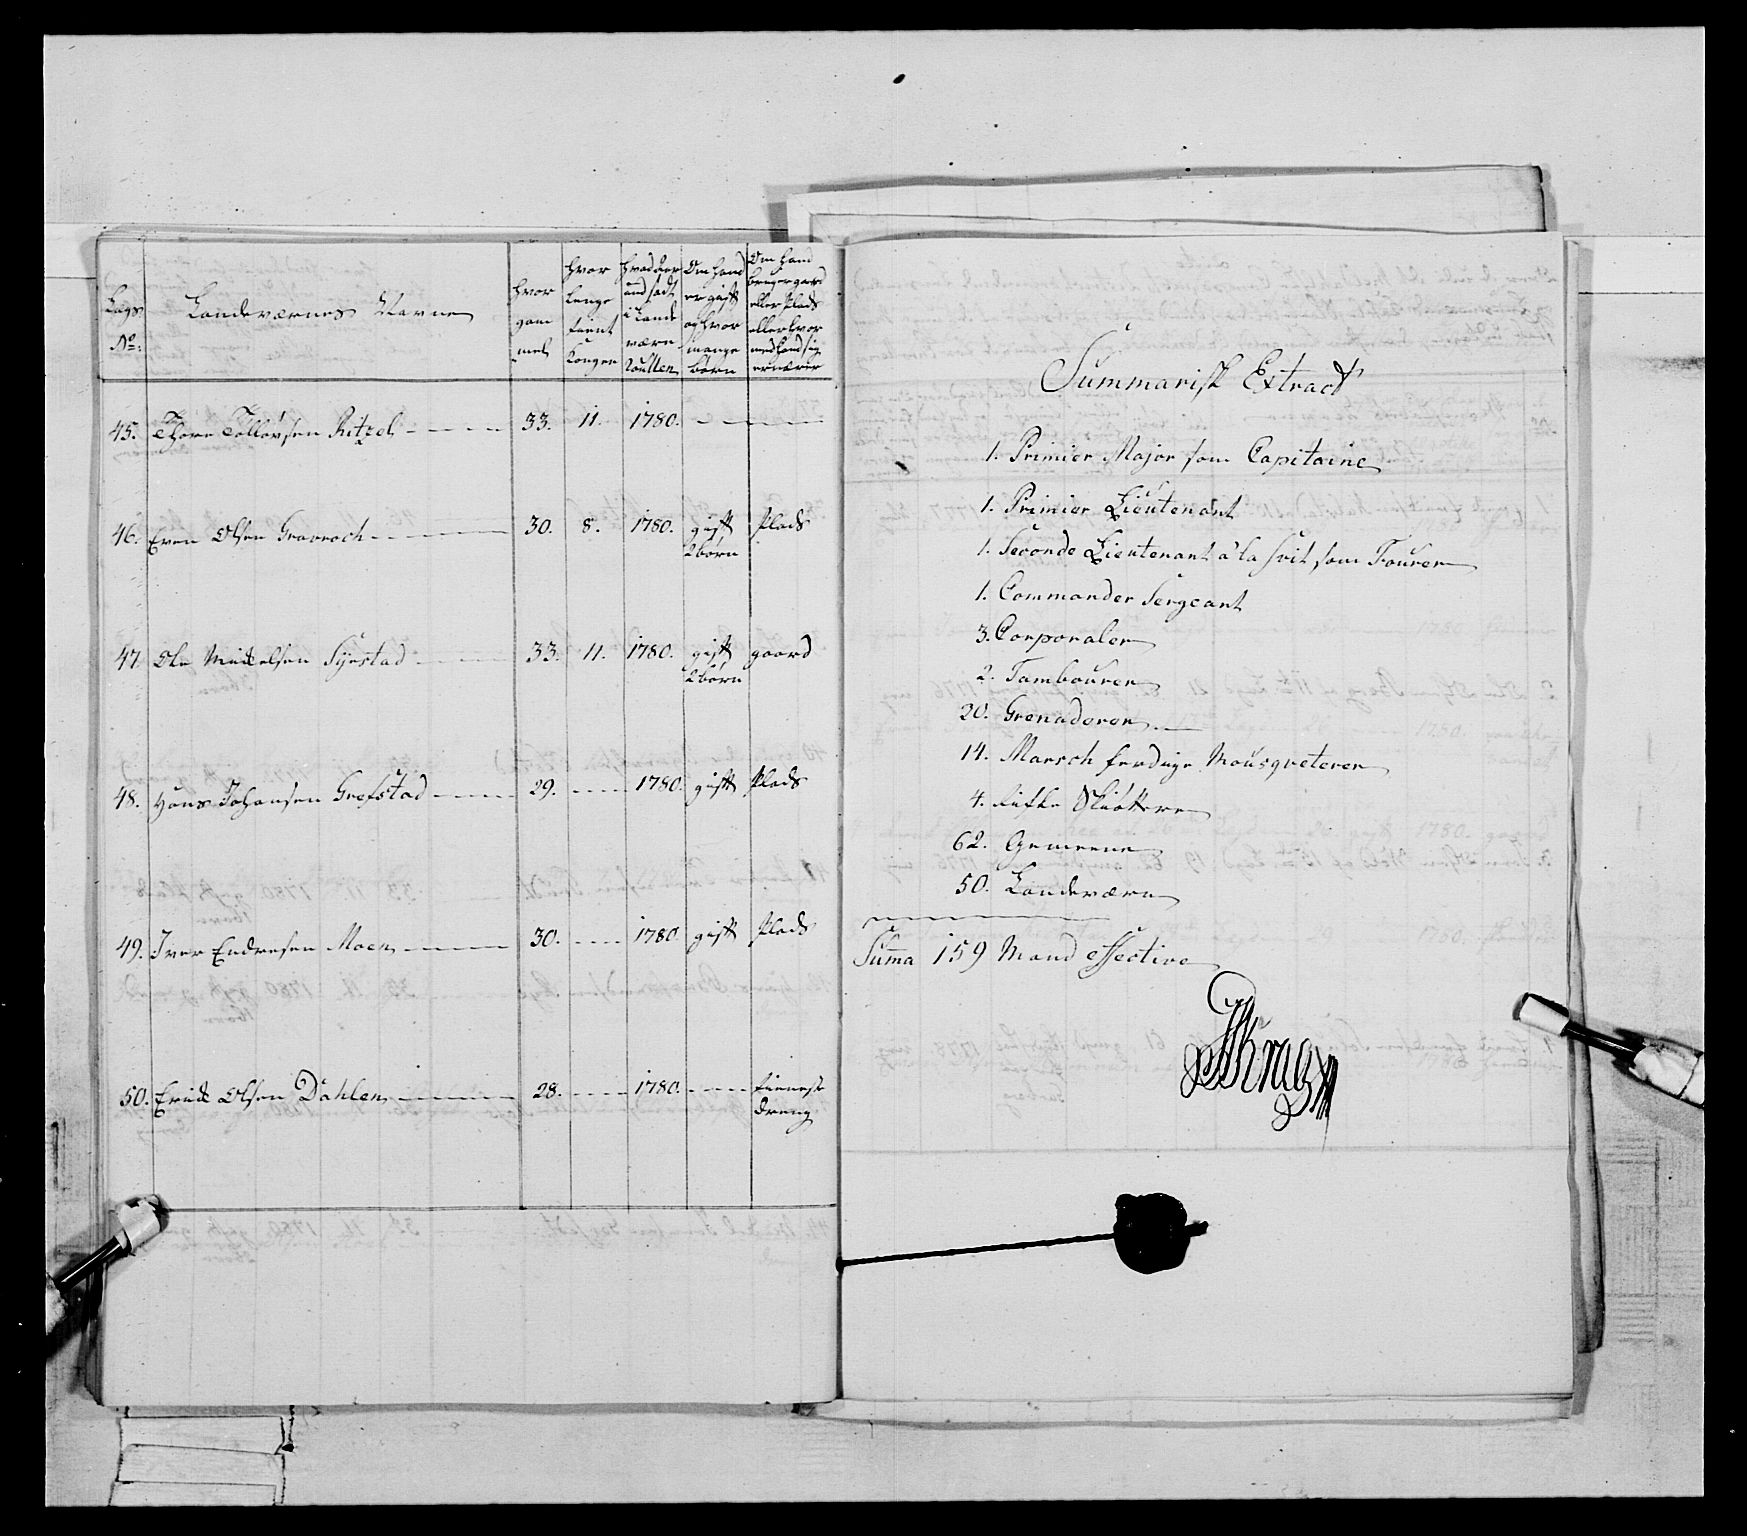 Lægs No:
Landeværnes Navne
hvor gammel
hvor lenge tient Kongen
hvad Aar and sadt i Lande værn Roullen
Om hand er gift og hvor mange børn
Om hand bruger gaard eller Plads eller hvor med hand sig ernærer
45. Thore Tolløvsen Ritzel 33. 11. 1780.
46. Even Olsen Gravroch 30. 8. 1780. gift 2 børn Plads
47. Ole Mickelsen Syrstad 33. 11. 1780. gift 2 børn gaard
48. Hans Johansen Grefstad 29. 1780. gift Plads
49. Iver Endresen Moen 30. 1780. gift Plads
50. Erick Olsen Dahlen 28. 1780. tieneste dreng
Summarisk Extract
1. Primier Major som Capitaine
1. Primier Lieutenant
1. Seconde Lieutenant a la Svit som Fourer
1. Commander Sergeant
3. Corporaler
2. Tambourer
20. Grenaderer
14. Marsch ferdige Mousqveterer
4. Rifle Skiøttere
62. Gemeene
50. Landeværn
Summa 159 Mand effective